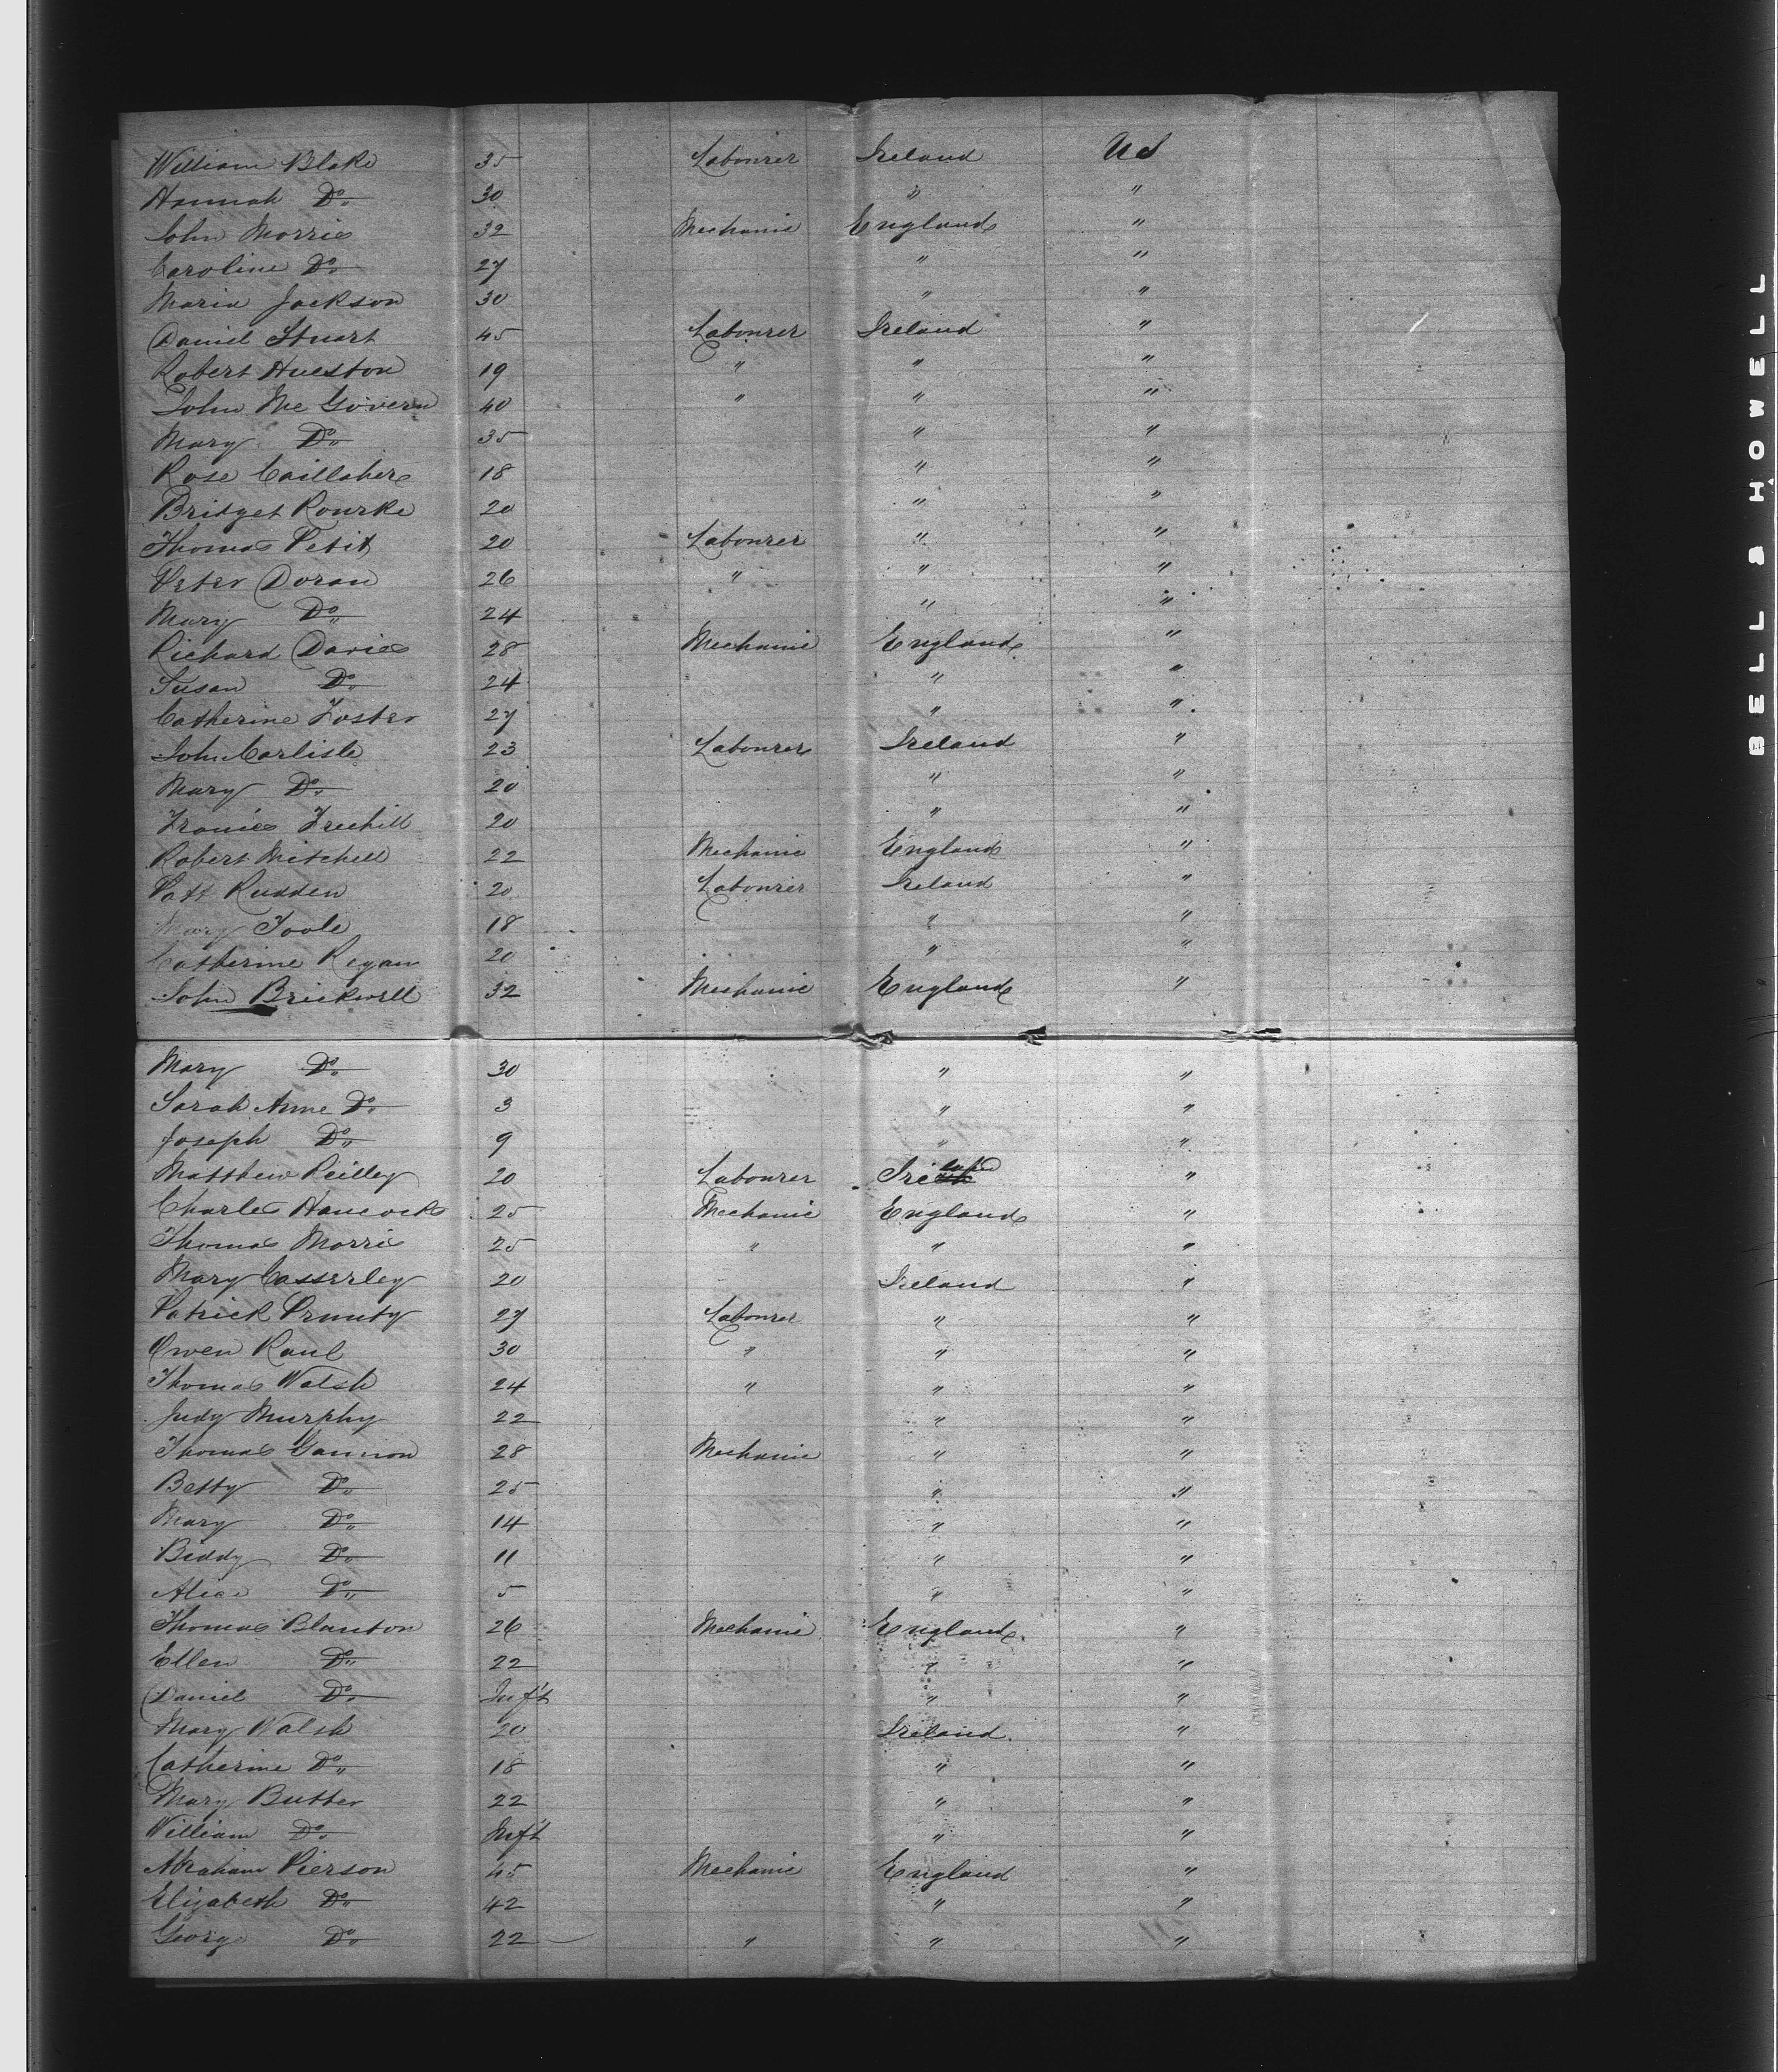 William Blake 35 Labourer Ireland U S
Hannah Do 30 " "
John Morris 32 Mechanic England "
Caroline Do 27 " "
Maria Jackson 30 " "
Daniel Stuart 45 Labourer Ireland "
Robert Hueston 19 " " "
John Mc Govern 40 " " "
Mary Do 35 " "
Rose Caillaher 18 " "
Bridget Rourke 20 " "
Thomas Petit 20 Labourer " "
Peter Doran 26 " " "
Mary Do 24 " "
Richard Davies 28 Mechanic England "
Susan Do 24 " "
Catherine Foster 27 " "
John Carlisle 23 Labourer Ireland "
Mary Do 20 " "
Francis Freehill 20 " "
Robert Mitchell 22 Mechanic England "
Patt Rudden 20 Labourer Ireland "
Mary Toole 18 " "
Catherine Regan 20 " "
John Brickwell 32 Mechanic England "
Mary Do 30 " "
Sarah Anne Do 3 " "
Joseph Do 9 " "
Matthew Reilley 20 Labourer Ireland "
Charles Hancock 25 Mechanic England "
Thomas Morris 25 " " "
Mary Casserley 20 Ireland "
Patrick Prunty 27 Labourer " "
Owen Raul 30 " " "
Thomas Walsh 24 " " "
Judy Murphy 22 " "
Thomas Gannon 28 Mechanic " "
Betty Do 25 " "
Mary Do 14 " "
Biddy Do 11 " "
Alice Do 5 " "
Thomas Blanton 26 Mechanic England "
Ellen Do 22 " "
Daniel Do Inf't " "
Mary Walsh 20 Ireland "
Catherine Do 18 " "
Mary Butter 22 " "
William Do Inf't " "
Abraham Pierson 45 Mechanic England "
Elizabeth Do 42 " "
George Do 22 " " "
BELL & HOWELL